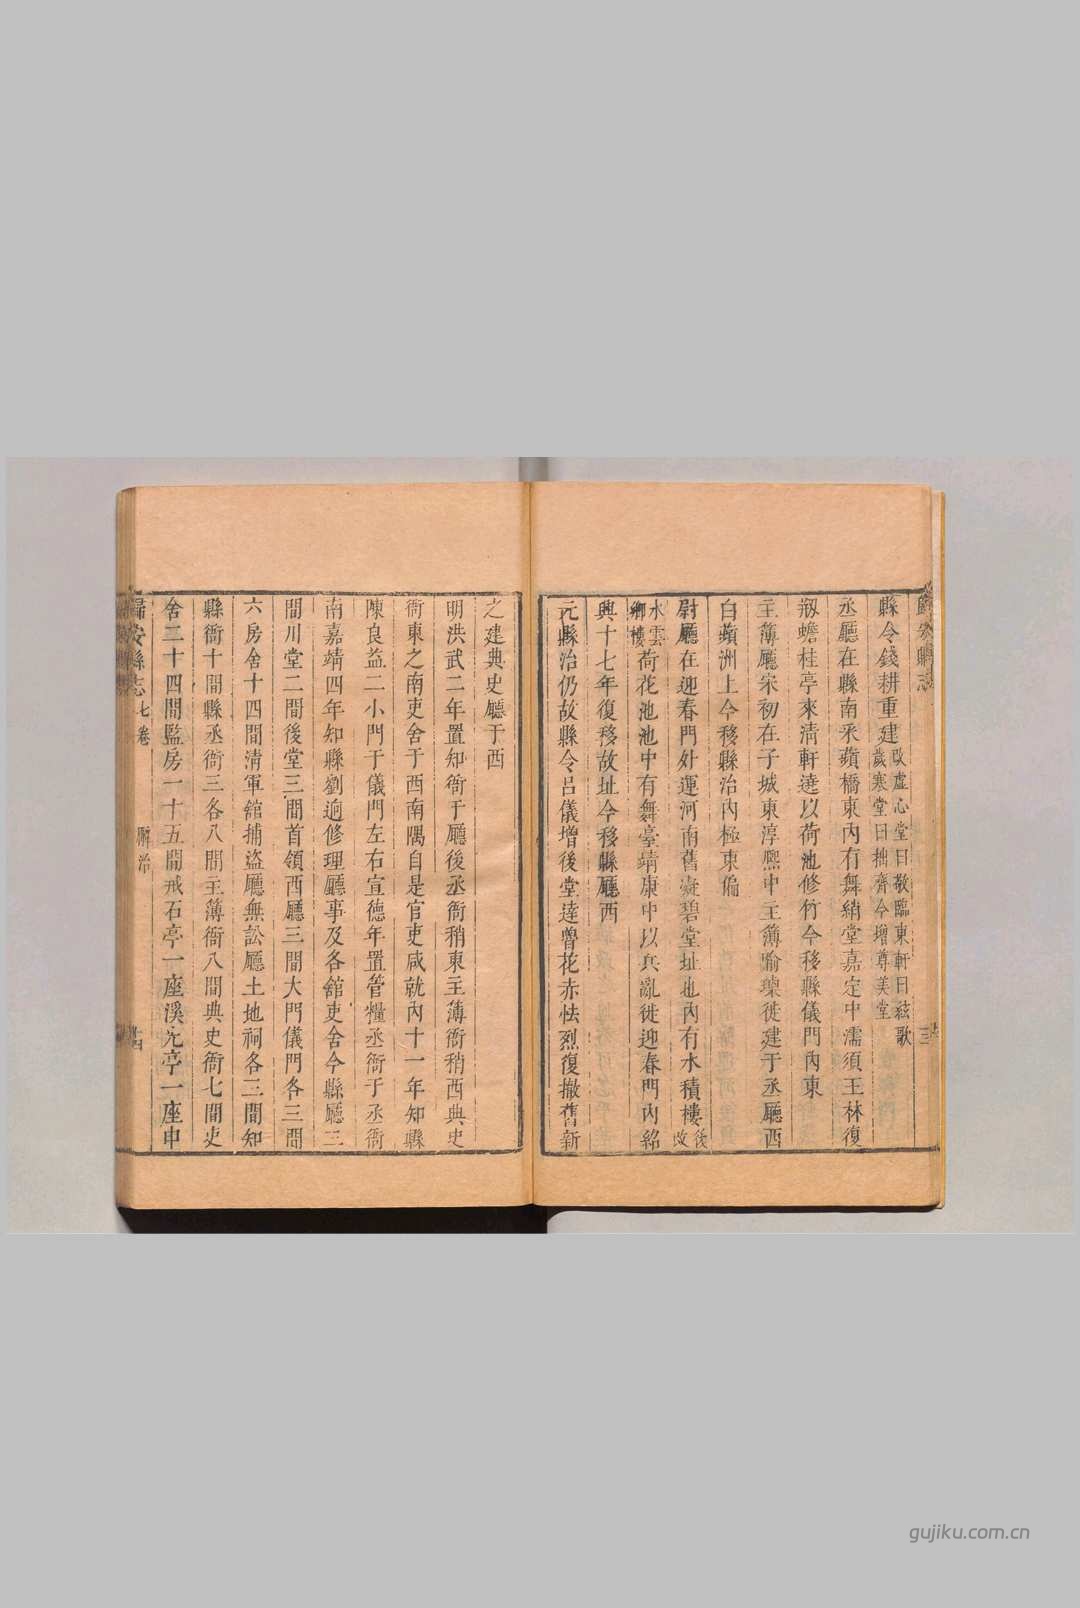 縣令錢耕重建改虛心堂曰敬臨東軒曰絃歌歲寒堂曰拙齊今增尊美堂
丞廳在縣南釆蘋橋東內有舞綃堂嘉定中濡須王林復
剏蟾桂亭來清軒遶以荷池修竹今移縣儀門內東
主簿廳宋初在子城東淳熈中主簿喻㯋徙建于丞廳西
白蘋洲上今移縣治內極東偏
尉廳在迎春門外運河南舊凝碧堂址也內有水積樓後改
水雲鄉樓荷花池池中有舞臺靖康中以兵亂徙迎春門內紹
興十七年復移故址今移縣廳西
元縣治仍故縣令呂儀增後堂達魯花赤怯烈復撤舊新
之建典史廳于西
明洪武二年置知衙于廳後丞衙稍東主簿衙稍西典史
衙東之南吏舍于西南隅自是官吏咸就內十一年知縣
陳良益二小門于儀門左右宣德年置管糧丞衙于丞衙
南嘉靖四年知縣劉逈修理廳事及各舘吏舍今縣廳三
間川堂二間後堂三間首領西廳三間大門儀門各三間
六房舍十四間清軍舘捕盜廳無訟廳土地祠各三間知
縣衙十間縣丞衙三各八間主簿衙八間典史衙七間吏
舍二十四間監房一十五間戒石亭一座溪光亭一座申
歸安縣志 七卷 廨治 十四
gujiku.com.cn